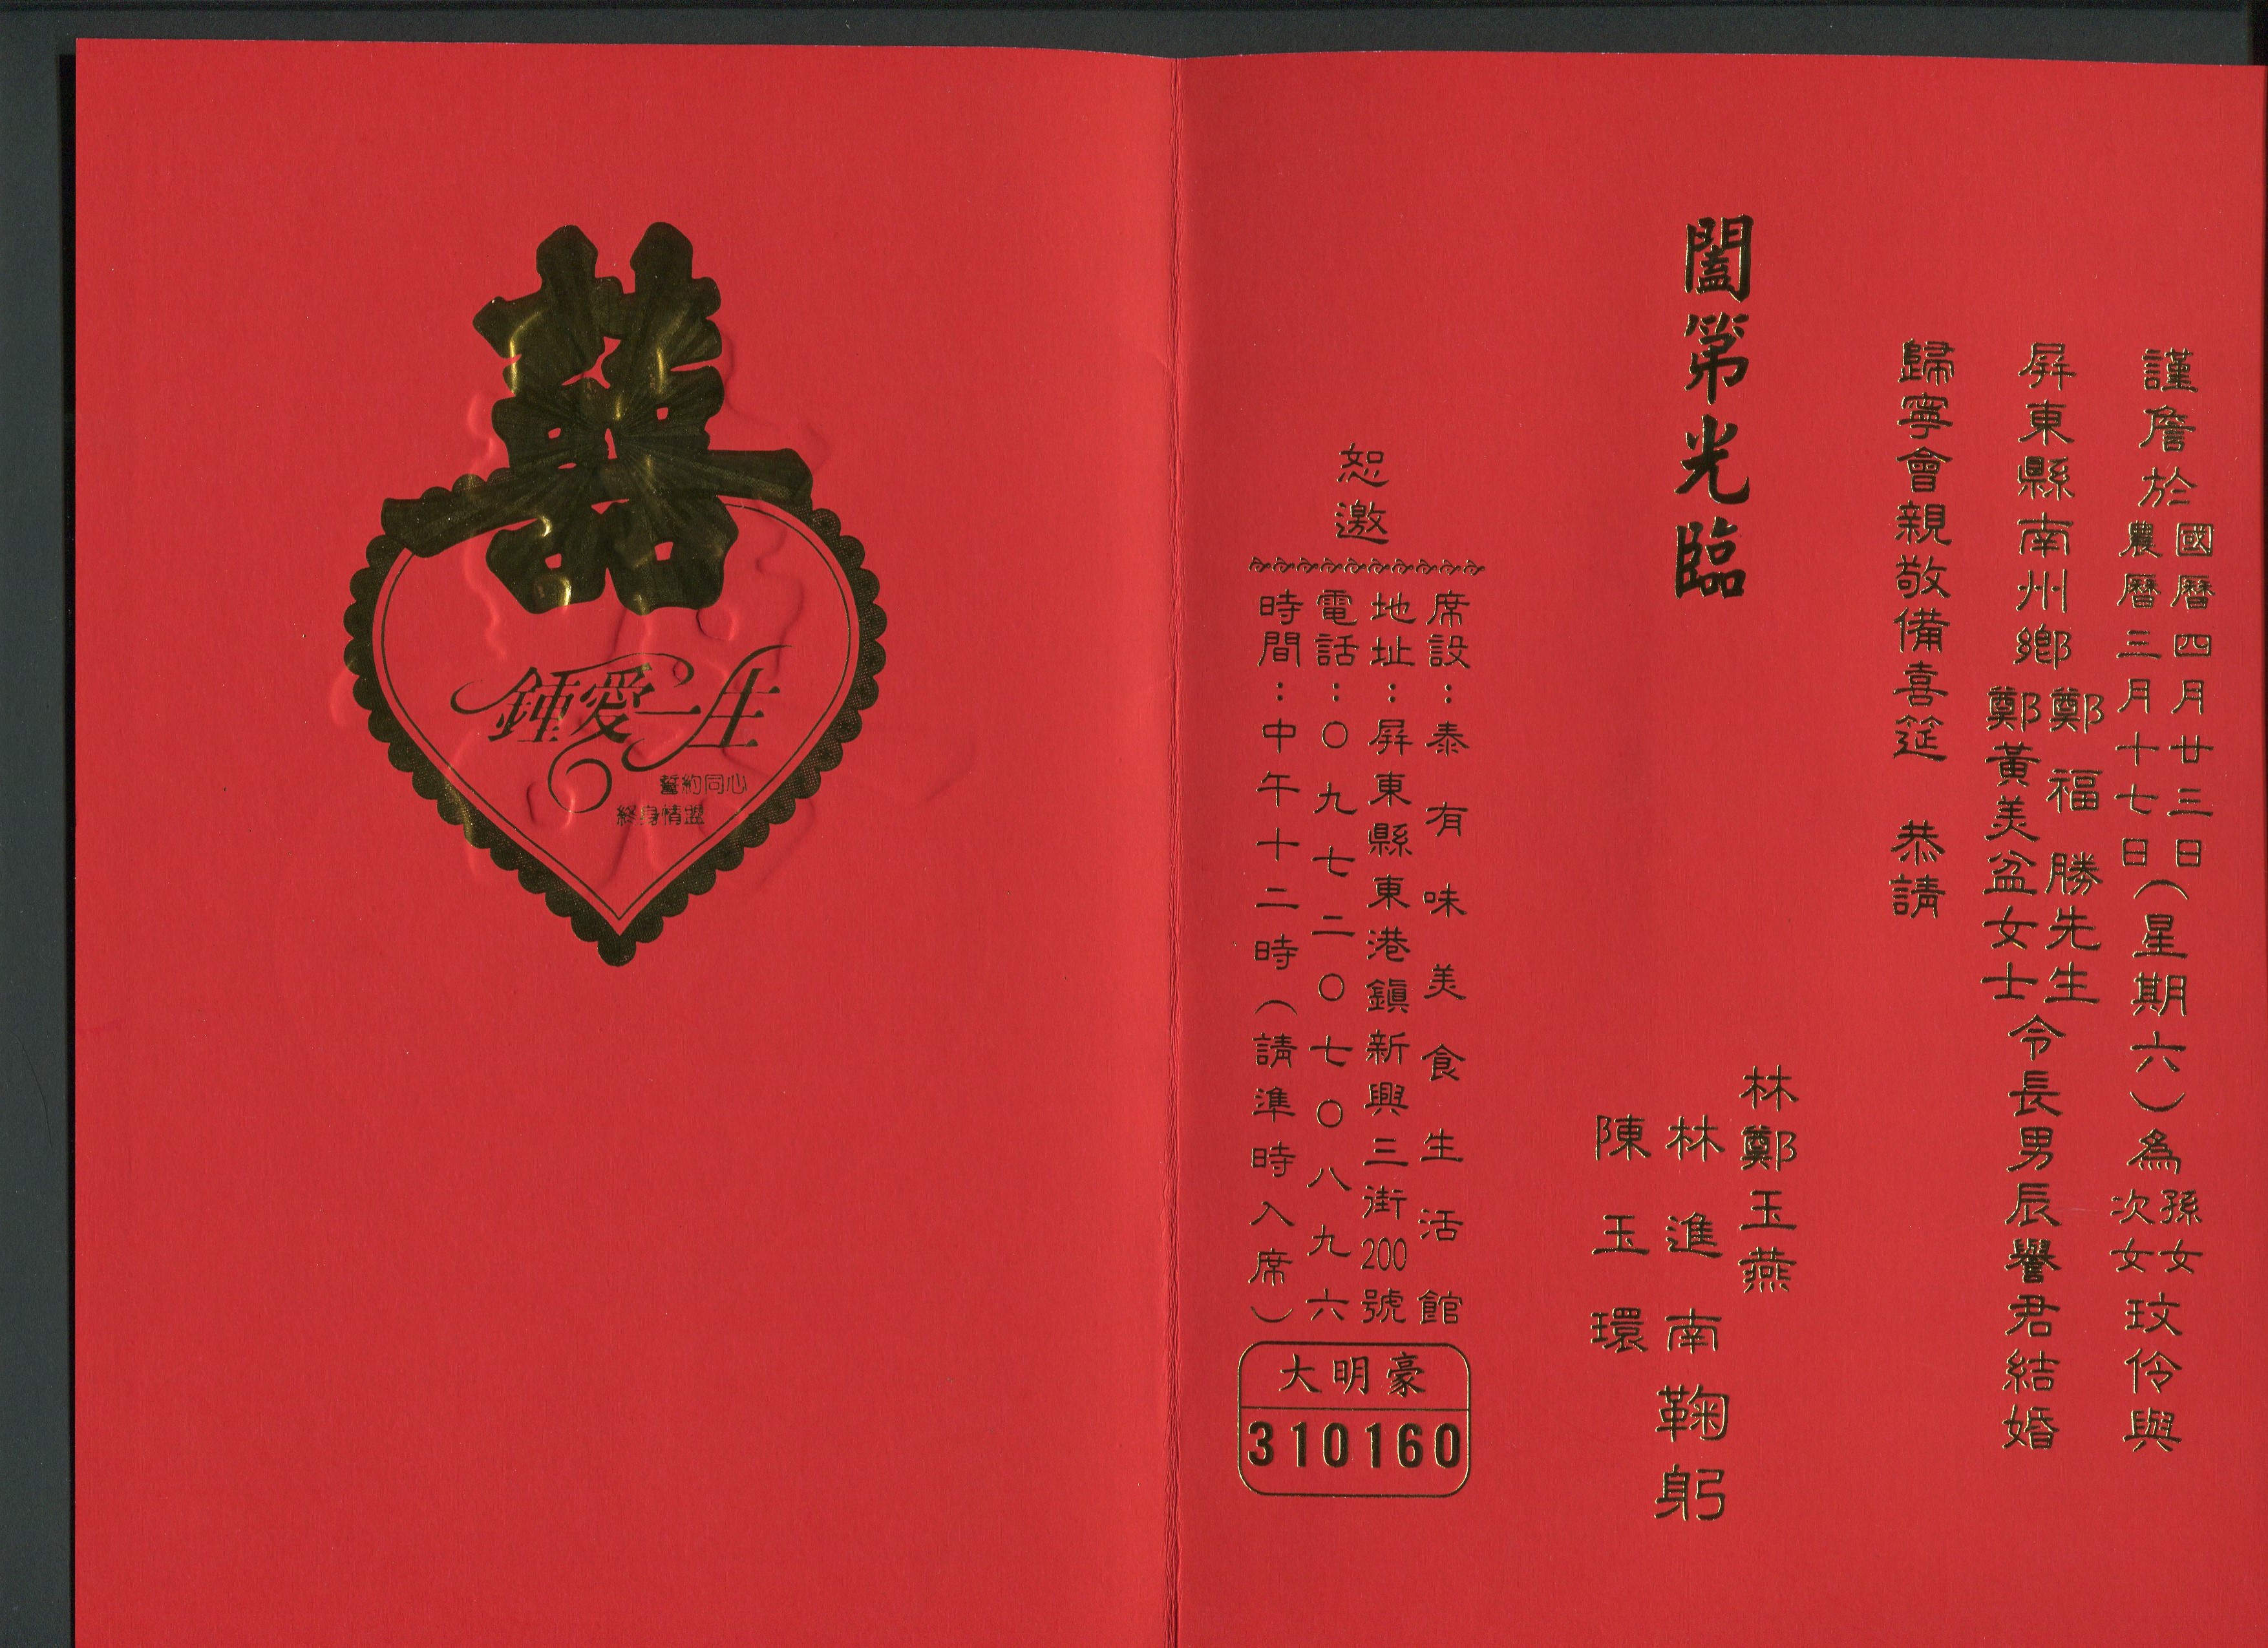 謹詹於國曆四月廿三日
農曆三月十七日(星期六)為孫女
次女玟伶與
屏東縣南州鄉鄭福勝先生
鄭黃美盆女士令長男辰譽君結婚
歸寧會親敬備喜筵 恭請
闔第光臨
林鄭玉燕
林進南鞠躬
陳玉環
恕邀
席設:泰有味美食生活館
地址:屏東縣東港鎮新興三街200號
電話:〇九七二〇七〇八九六
時間:中午十二時(請準時入席)
大明豪
310160
囍
鍾愛一生
誓約同心
終身情盟